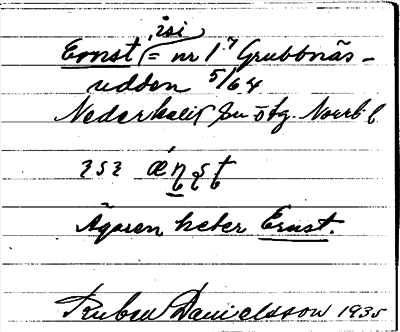 isi
Ernst (= nr 1⁷ Grubbnäs-
udden 5/64
Nederkalix sn Norrb
Ägaren heter Ernst.
Ruben Danielsson 1935